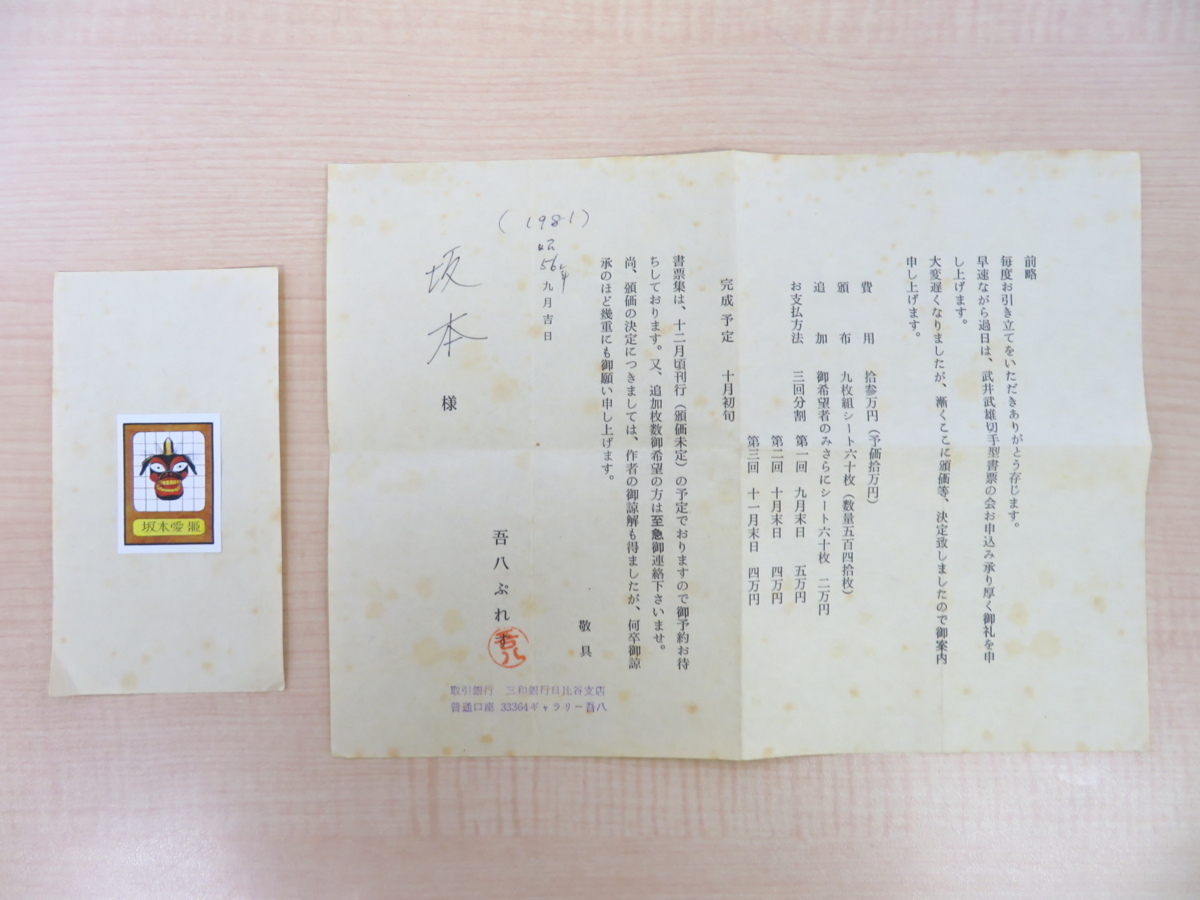 前略
毎度お引き立てをいただきありがとう存じます。
早速ながら過日は、武井武雄切手型書票の会お申込み承り厚く御礼を申
し上げます。
大変遅くなりましたが、漸くここに頒価等、決定致しましたので御案内
申し上げます。
費用 拾参万円（予価拾万円）
頒布 九枚組シート六十枚（数量五百四拾枚）
追加 御希望者のみさらにシート六十枚 二万円
お支払方法 三回分割 第一回 九月末日 五万円
第二回 十月末日 四万円
第三回 十一月末日 四万円
完成予定 十月初旬
書票集は、十二月頃刊行（頒価未定）の予定でおりますので御予約お待
ちしております。又、追加枚数御希望の方は至急御連絡下さいませ。
尚、頒価の決定につきましては、作者の御諒解も得ましたが、何卒御諒
承のほど幾重にも御願い申し上げます。
敬具
(1981)
昭56年 九月吉日
吾八ぷれす
吾八
坂本 様
取引銀行 三和銀行日比谷支店
普通口座 33364ギャラリー吾八
坂本愛